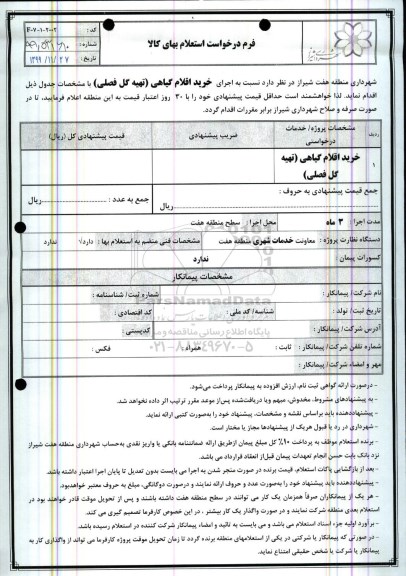 فرم درخواست استعلام بهای کالا
کد : F-۷-۱-۲-۲
شماره :
تاریخ : ۱۳۹۹/۱۱/۲۷
شهرداری منطقه هفت شیراز در نظر دارد نسبت به اجرای خرید اقلام گیاهی (تهیه گل فصلی) با مشخصات جدول ذیل
اقدام نماید. لذا خواهشمند است حداقل قیمت پیشنهادی خود را با ۳۰ روز اعتبار قیمت به این منطقه اعلام فرمایید، تا در
صورت صرفه و صلاح شهرداری شیراز برابر مقررات اقدام گردد.
ردیف مشخصات پروژه/ خدمات درخواستی ضریب پیشنهادی قیمت پیشنهادی کل (ریال)
۱ خرید اقلام گیاهی (تهیه گل فصلی)
جمع قیمت پیشنهادی به حروف :
ریال جمع به عدد : ریال
مدت اجرا : ۳ ماه محل اجرا : سطح منطقه هفت
دستگاه نظارت پروژه : معاونت خدمات شهری منطقه هفت مشخصات فنی منضم به استعلام بها : دارد√ ندارد
کسورات پیمان : ندارد
مشخصات پیمانکار
نام شرکت/ پیمانکار : شماره ثبت/ شناسنامه :
تاریخ ثبت/ تولد : شناسه/ کد ملی : کد اقتصادی :
آدرس شرکت/ پیمانکار : کدپستی :
شماره تلفن شرکت/ پیمانکار : ثابت : همراه : فکس :
مهر و امضاء شرکت/ پیمانکار :
ParsNamadData
پایگاه اطلاع رسانی مناقصه و مزایده
۰۲۱-۸۸۳۴۹۶۷۰-۵
- درصورت ارائه گواهی ثبت نام، ارزش افزوده به پیمانکار پرداخت می‌شود.
- به پیشنهادهای مشروط، مخدوش، مبهم ویا دریافت‌شده پس‌از موعد مقرر ترتیب اثر داده نخواهد شد.
- پیشنهاددهنده باید براساس نقشه و مشخصات، پیشنهاد خود را به‌صورت کتبی ارائه نماید.
- شهرداری در رد یا قبول هریک از پیشنهادها مجاز یا مختار است.
- برنده استعلام موظف به پرداخت ۱۰٪ کل مبلغ پیمان ازطریق ارائه ضمانتنامه بانکی یا واریز نقدی به‌حساب شهرداری منطقه هفت شیراز
نزد بانک بابت حسن انجام تعهدات پیمان قبل‌از انعقاد قرارداد می باشد.
- بعد از بازگشایی پاکات استعلام، قیمت برنده در صورت منجر شدن به اجرا می بایست بدون تعدیل تا پایان اجرا اعتبار داشته باشد.
- پیشنهاددهنده باید پیشنهاد خود را به‌صورت عدد و حروف ارائه نمایند و درصورت دوگانگی، مبلغ به حروف معتبر خواهدبود.
- هر یک از پیمانکاران صرفاً همزمان یک کار می توانند در سطح منطقه هفت داشته باشند و پس از تحویل موقت قادر خواهند بود در
استعلام بعدی منطقه شرکت نمایند و در صورت واگذار یک کار بیشتر ، در این خصوص کارفرما تصمیم گیری می کند.
- برآورد اولیه جزء اسناد استعلام می باشد و می بایست به تائید و امضاء پیمانکار شرکت کننده در استعلام رسیده باشد.
- در صورتی که پیمانکار یا شرکتی در یکی از استعلامهای منطقه برنده گردد تا زمان تحویل موقت پروژه کارفرما می تواند از واگذاری کار به
پیمانکار یا شرکت یا شخص حقیقی امتناع نماید.